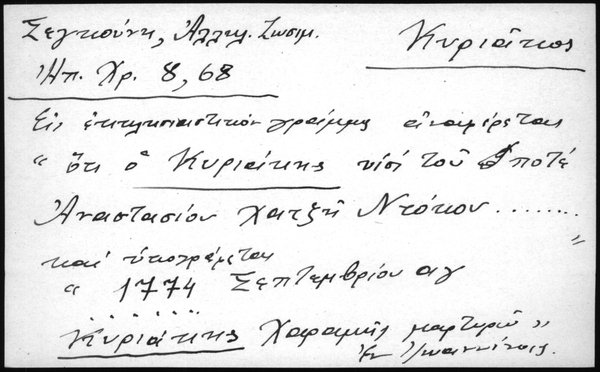 Σεγκούνη, Ἀλληλ. Ζωσιμ.
Κυριάκος
Ἠπ. Χρ. 8, 68
Εἰς ἐκκλησιαστικόν γράμμα ἀναφέρεται
“ ὅτι ὁ Κυριάκης υἱός τοῦ ποτέ
Ἀναστασίου χατζῆ Ντόκου ........ ”
καί ὑπογράφεται
“ 1774 Σεπτεμβρίου αγ
.......
Κυριάκης Χαραμῆς μαρτυρῶ ”
Ἐν Ἰωαννίνοις.